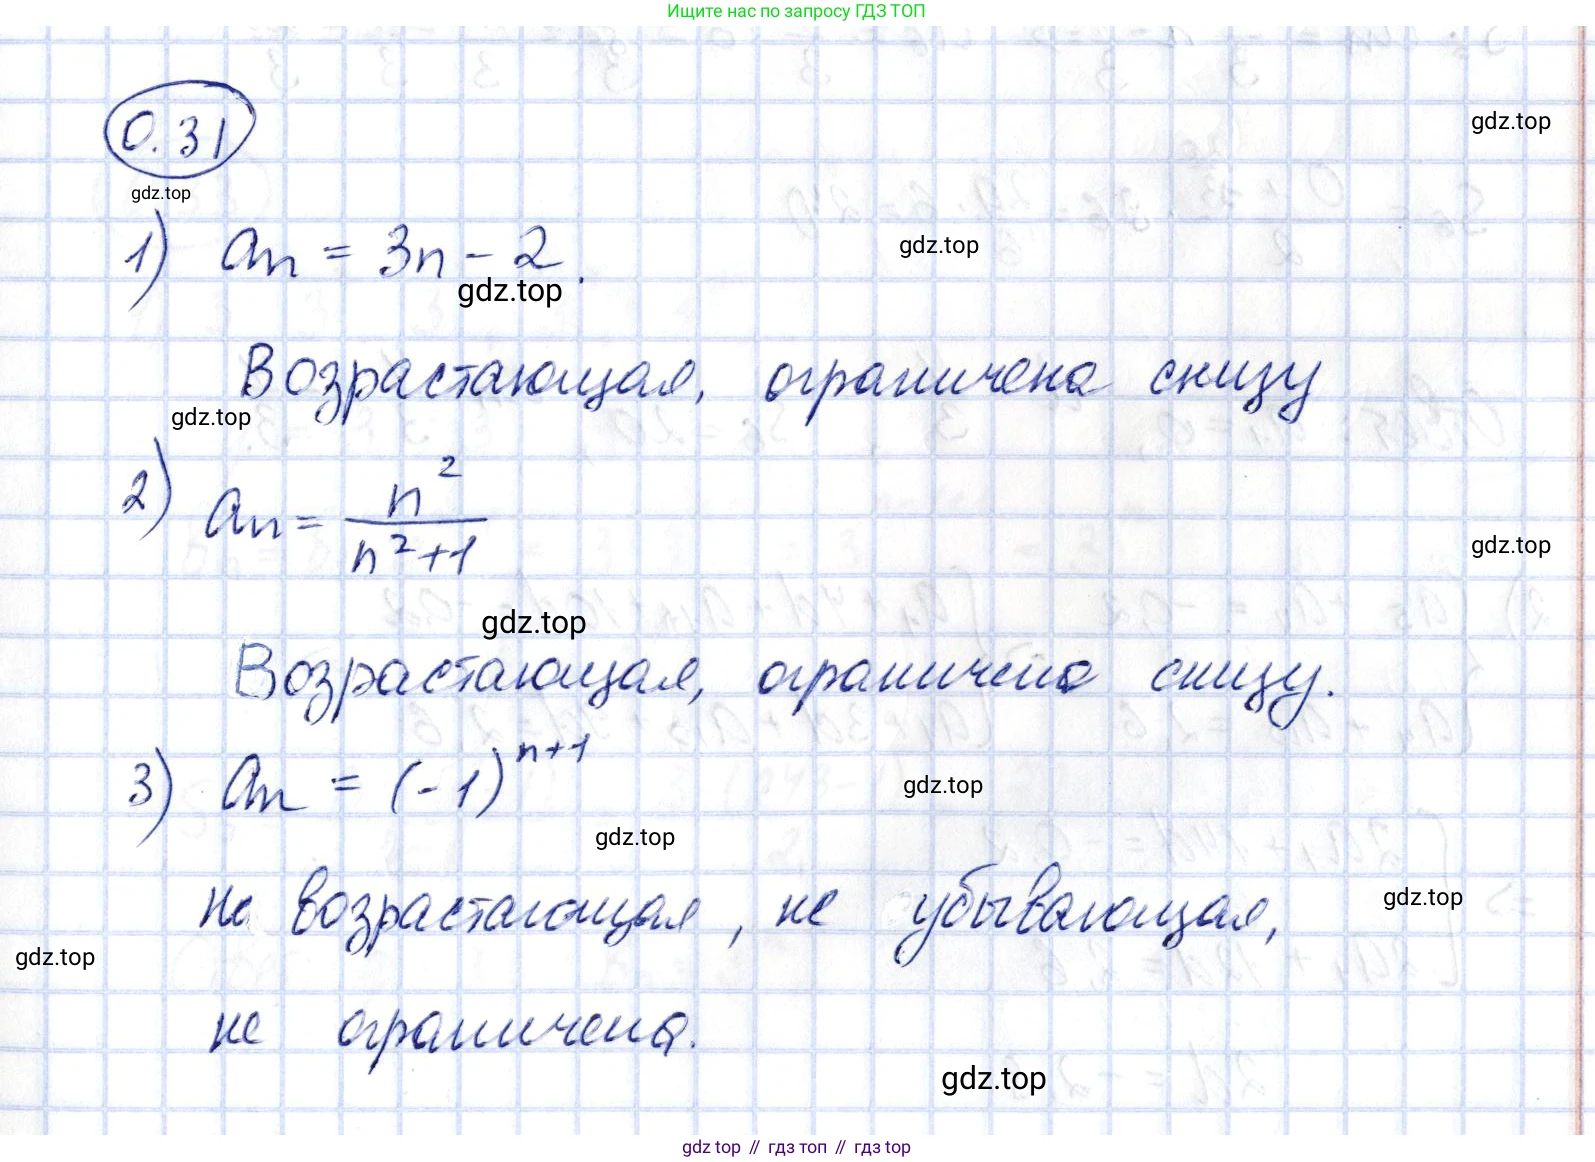 Ищите нас по запросу ГДЗ ТОП
0.31
gdz.top
gdz.top
1) an = 3n - 2.
gdz.top
gdz.top
Возрастающая, ограничена снизу
gdz.top
2) an = n² / n²+1
gdz.top
gdz.top
Возрастающая, ограничена снизу.
3) an = (-1)ⁿ⁺¹
gdz.top
gdz.top
не возрастающая, не убывающая,
gdz.top
gdz.top
не ограничена.
gdz.top
gdz top // гдз топ // гдз top